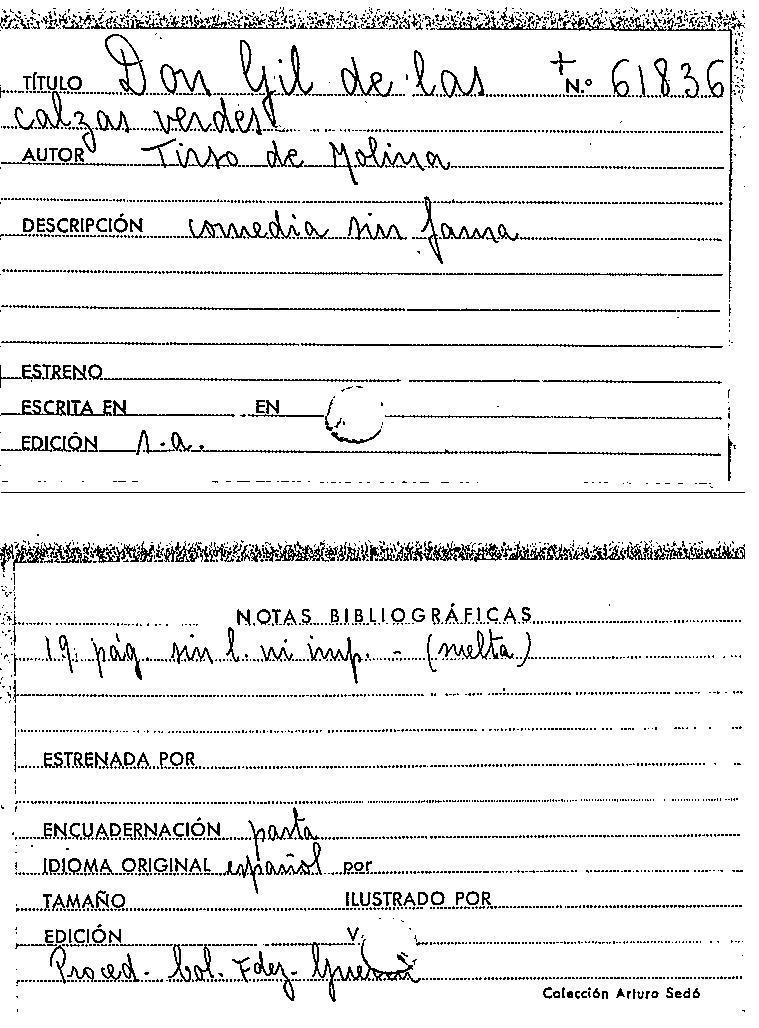 TÍTULO Don Gil de las + N.º 61836
calzas verdes
AUTOR Tirso de Molina
DESCRIPCIÓN comedia sin fama
ESTRENO
ESCRITA EN EN
EDICIÓN s.a.
NOTAS BIBLIOGRÁFICAS
19 pág. sin l. ni imp. - (suelta)
ESTRENADA POR
ENCUADERNACIÓN pasta
IDIOMA ORIGINAL español por
TAMAÑO ILUSTRADO POR
EDICIÓN V.
Proced. Col. Fdez-
Colección Arturo Sedó